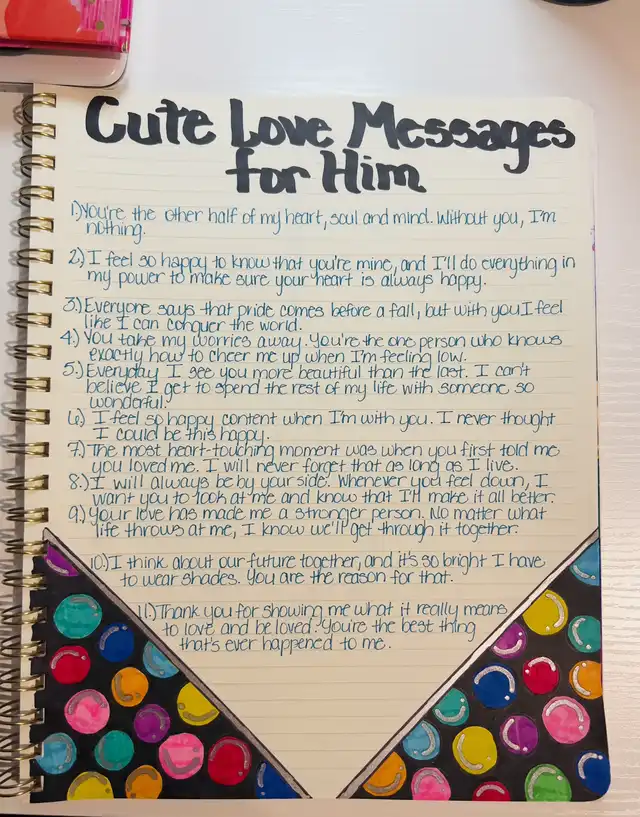 Cute Love Messages
for Him
1.) You're the other half of my heart, soul and mind. Without you, I'm
nothing.
2.) I feel so happy to know that you're mine, and I'll do everything in
my power to make sure your heart is always happy.
3.) Everyone says that pride comes before a fall, but with you I feel
like I can conquer the world.
4.) You take my worries away. You're the one person who knows
exactly how to cheer me up when I'm feeling low.
5.) Everyday I see you more beautiful than the last. I can't
believe I get to spend the rest of my life with someone so
wonderful.
6.) I feel so happy content when I'm with you. I never thought
I could be this happy.
7.) The most heart-touching moment was when you first told me
you loved me. I will never forget that as long as I live.
8.) I will always be by your side. Whenever you feel down, I
want you to look at me and know that I'll make it all better.
9.) Your love has made me a stronger person. No matter what
life throws at me, I know we'll get through it together.
10.) I think about our future together, and it's so bright I have
to wear shades. You are the reason for that.
11.) Thank you for showing me what it really means
to love and be loved. You're the best thing
that's ever happened to me.